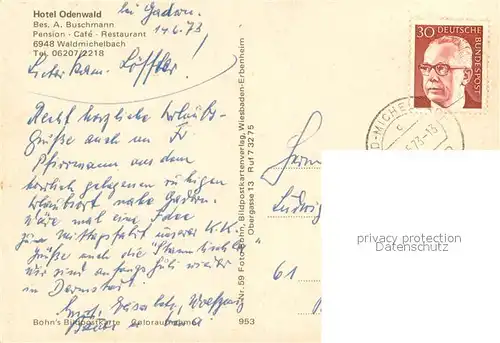 Hotel Odenwald
Bes. A. Buschmann
Pension - Café - Restaurant
6948 Waldmichelbach
Tel. 06207/2218
bei Gadern.
14.6.73
Lieber Kam. Löffler!
Recht herzliche Urlaubs-
grüße auch an Fr.
aus dem
herrlich gelegenen ruhigen
Urlaubsort nahe Gadern.
Wäre mal eine Idee
zur Mittagsfahrt unserer K.K.
Grüße auch die
wir sind anfangs Juli wieder
in Darmstadt.
Bohn's Bildpostkarte Coloraufnahme
953
Nr. 59 Foto-Bohn, Bildpostkartenverlag, Wiesbaden-Erbenheim
Obergasse 13 Ruf 73275
30 DEUTSCHE
BUNDESPOST
D-MICHEL
c
.73-13
Herrn
Ludwig
61
privacy protection
Datenschutz